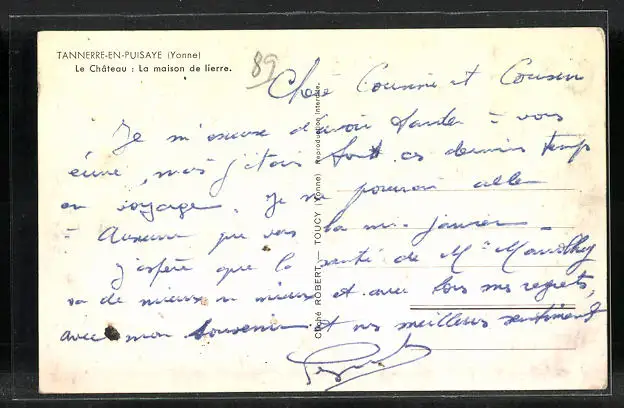 TANNERRE-EN-PUISAYE (Yonne)
Le Château : La maison de lierre.
89
Chère Cousine et Cousin
Je m'excuse d'avoir tardé à vous
écrire, mais j'étais ces derniers temps
en voyage. Je ne pourrai aller
à Auxerre que vers la mi-janvier.
J'espère que la santé de
va de mieux en mieux et avec tous mes regrets,
avec mon souvenir et mes meilleurs sentiments
Cliché ROBERT — TOUCY (Yonne) Reproduction interdite.